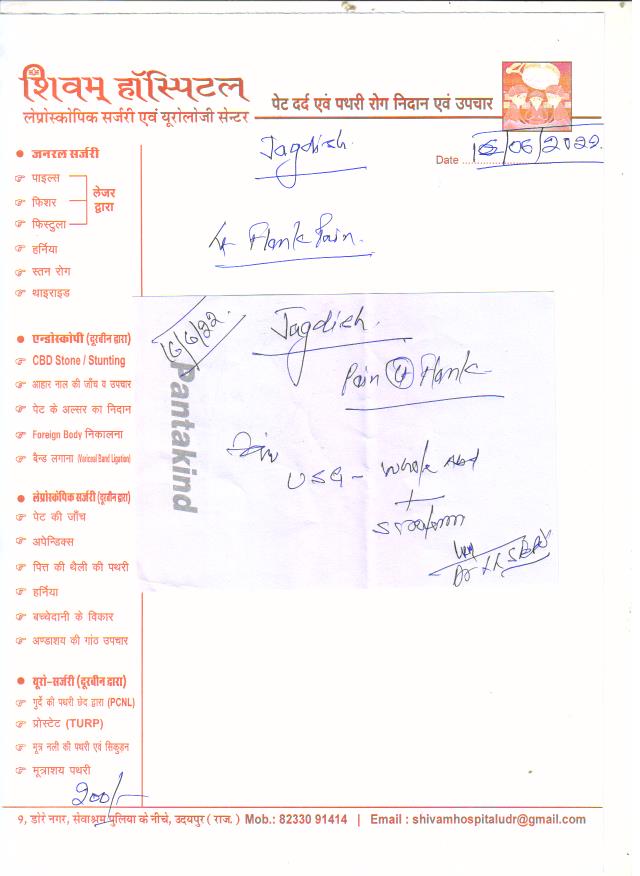 शिवम् हॉस्पिटल
लेप्रोस्कोपिक सर्जरी एवं यूरोलोजी सेन्टर
पेट दर्द एवं पथरी रोग निदान एवं उपचार
Jagdish
Date ............ /06/2022
Lt Flank Pain.
जनरल सर्जरी
पाइल्स
फिशर
फिस्टुला
लेजर द्वारा
हर्निया
स्तन रोग
थाइराइड
एन्डोस्कोपी (दूरबीन द्वारा)
CBD Stone / Stunting
आहार नाल की जाँच व उपचार
पेट के अल्सर का निदान
Foreign Body निकालना
बैन्ड लगाना (Variceal Band Ligation)
लेप्रोस्कॅपिक सर्जरी (दूरबीन द्वारा)
पेट की जाँच
अपेन्डिक्स
पित्त की थैली की पथरी
हर्निया
बच्चेदानी के विकार
अण्डाशय की गांठ उपचार
यूरो-सर्जरी (दूरबीन द्वारा)
गुर्दे की पथरी छेद द्वारा (PCNL)
प्रोस्टेट (TURP)
मूत्र नली की पथरी एवं सिकुड़न
मूत्राशय पथरी
200/-
/6/22.
Jagdish.
Pantakind
Pain Lt Flank
USG - Whole Abd
+
Dr
9, डोरे नगर, सेवाश्रम पुलिया के नीचे, उदयपुर ( राज. ) Mob.: 82330 91414 | Email : shivamhospitaludr@gmail.com